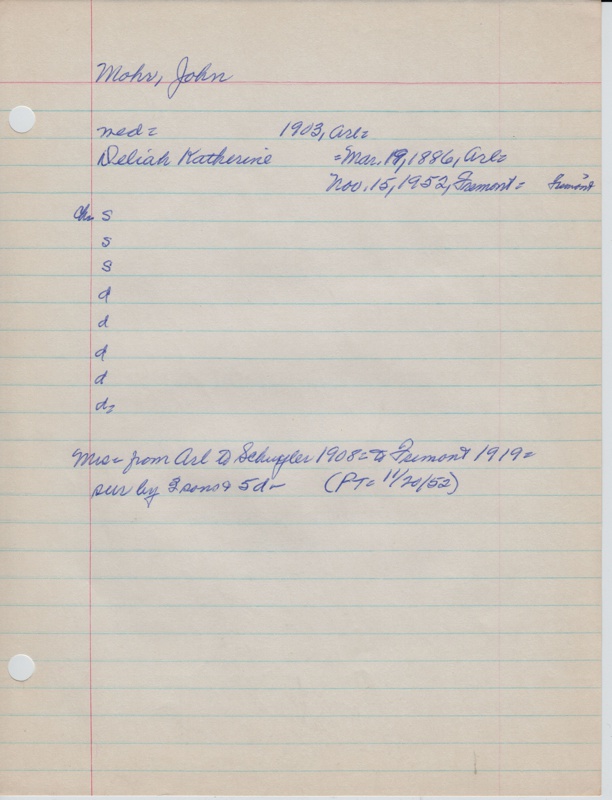 Mohr, John
med= 1903, Arl=
Deliah Katherine =Mar. 19, 1886, Arl=
Nov. 15, 1952, Fremont= Fremont
Ch= s
s
s
d
d
d
d
d=
from Arl to Schuyler 1908= to Fremont 1919=
sur by 3 sons & 5d- (PT= 11/20/52)